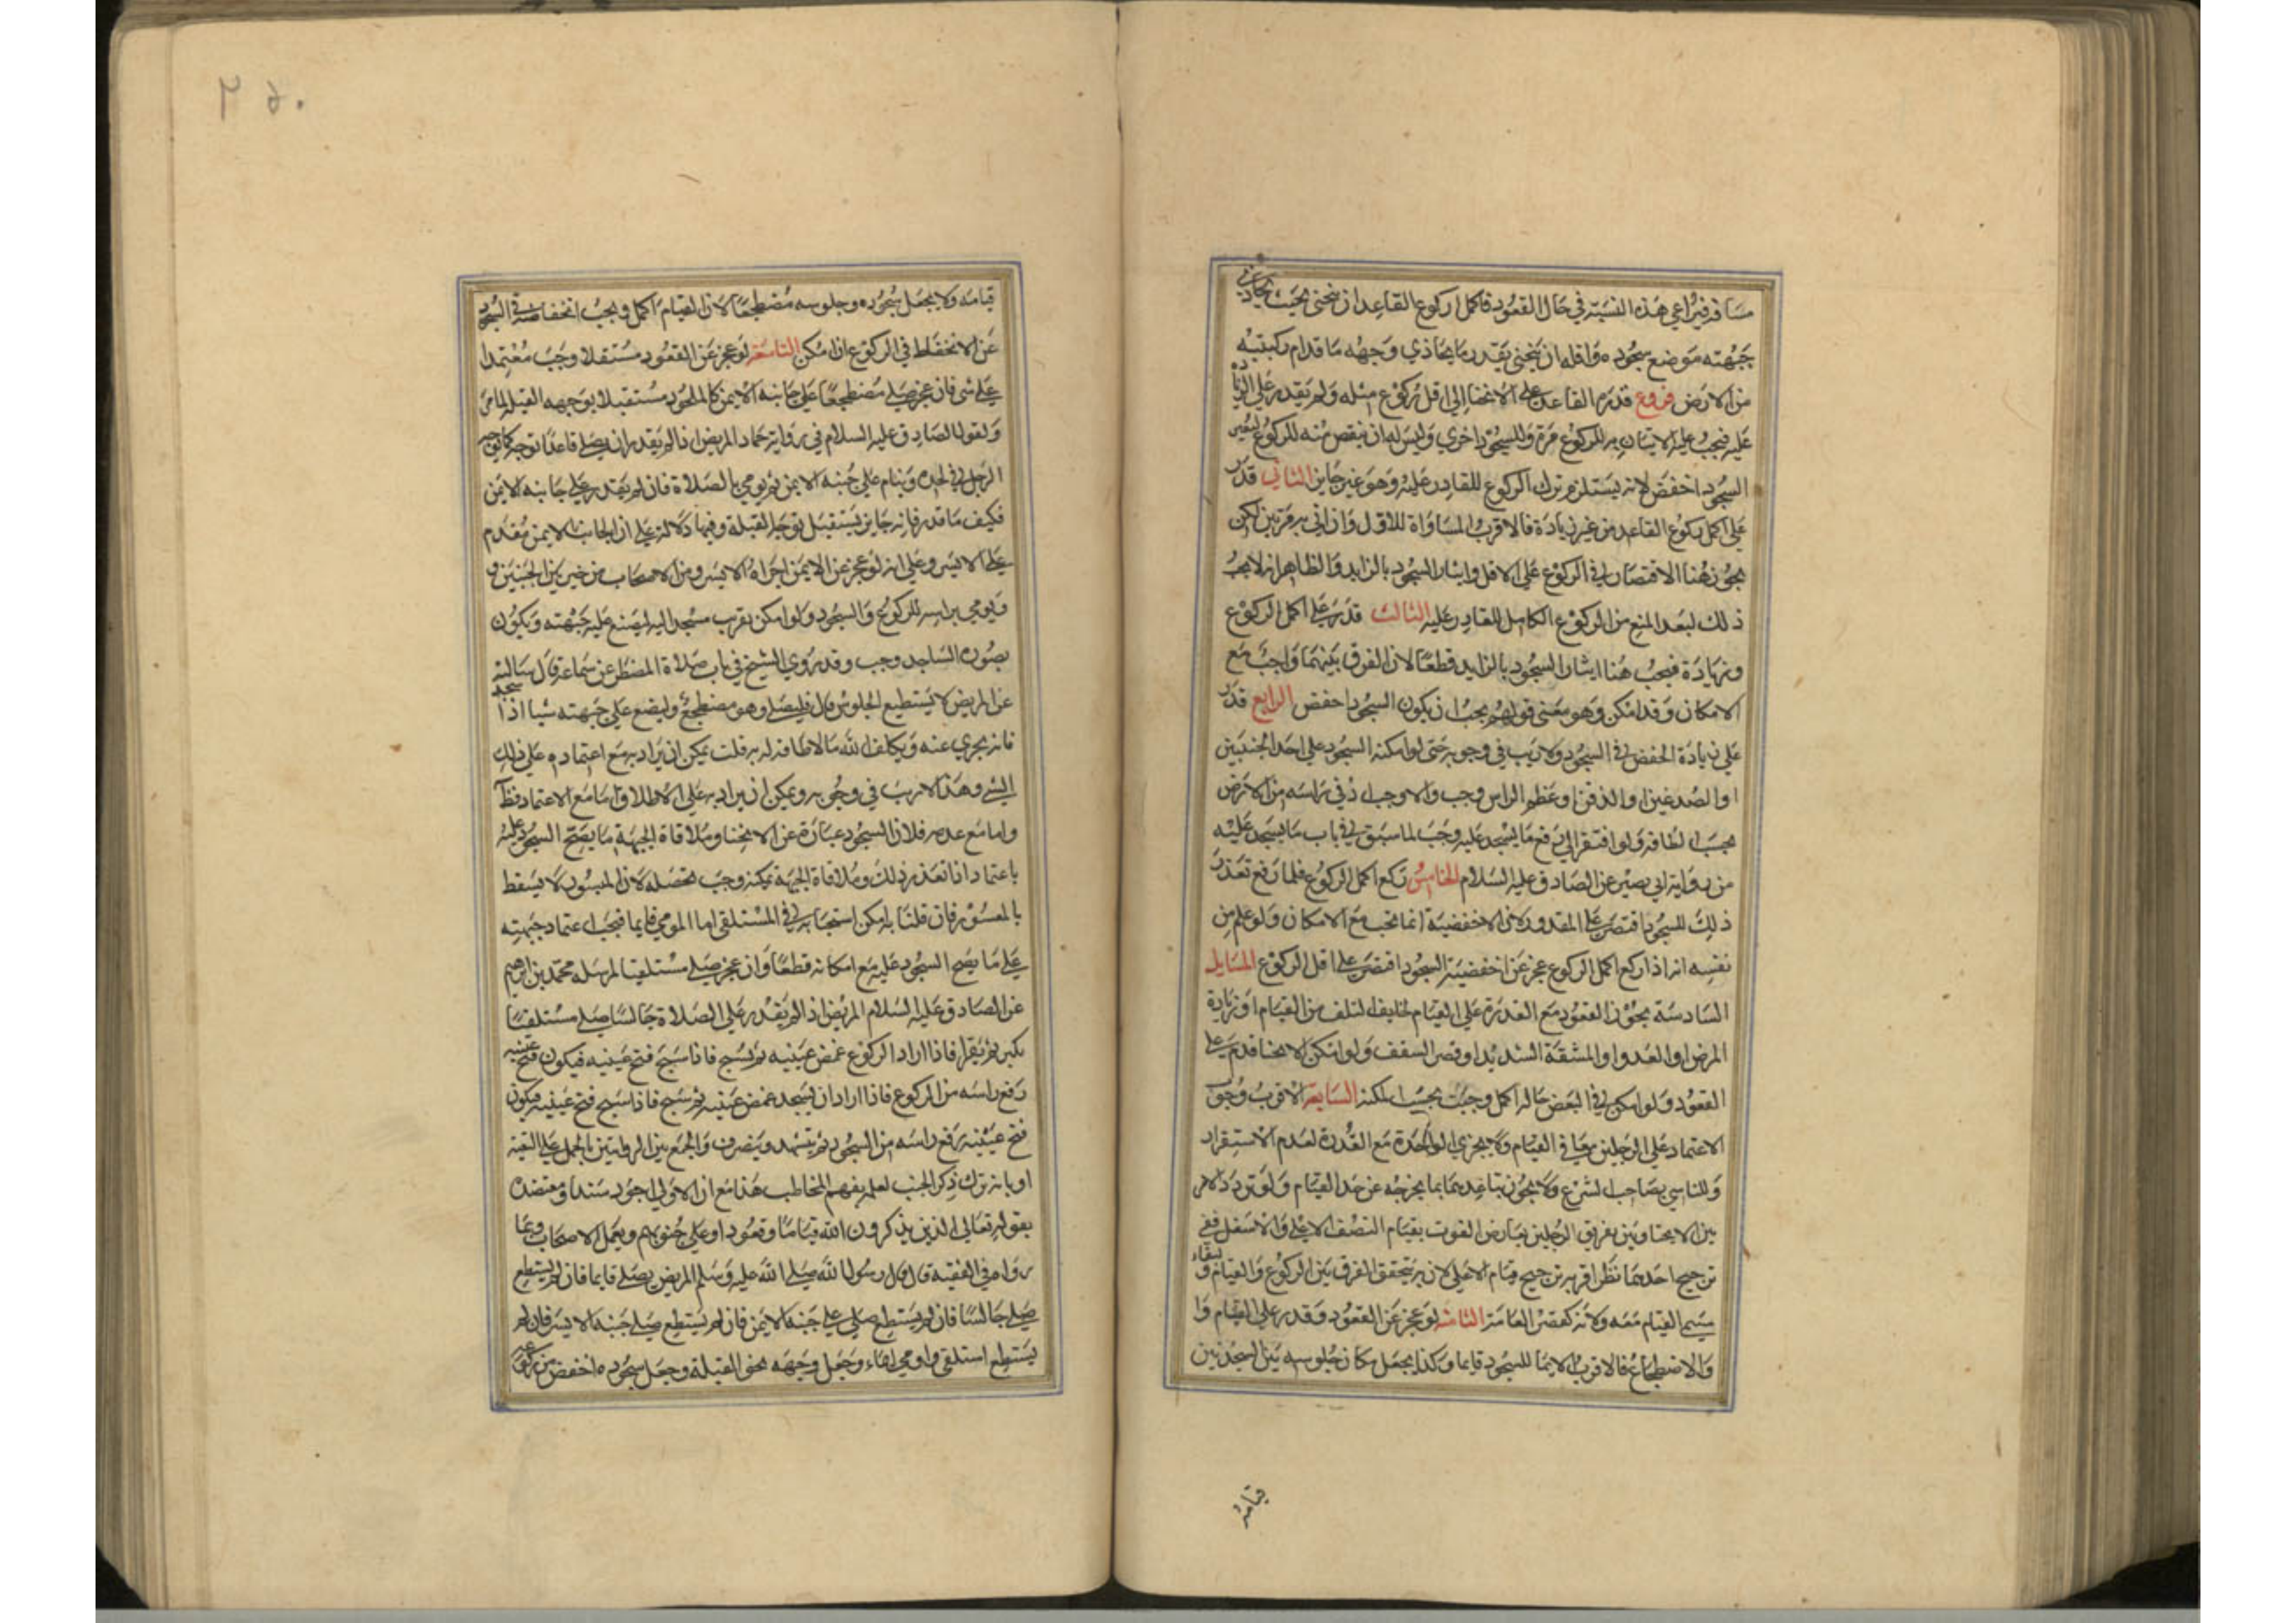 مسافة فيراعي هذه النسبة في حال القعود فاكمل ركوع القاعد ان ينحني بحيث يحاذي
جبهته موضع سجوده واقله ان ينحني بقدر ما يحاذي وجهه ما قدام ركبتيه
من الارض فروع قدر القاعد على الانحناء الى اقل ركوع مثله ولم يقدر على الزيادة
عليه فيجب عليه الاتيان به للركوع مرة وللسجود اخري وليس له ان ينقص منه للركوع ليصير
السجود اخفض لانه يستلزم ترك الركوع للقادر عليه وهو غير جايز الثاني قدر
على اكمل ركوع القاعد من غير زيادة فالاقرب المساواة للاول وان اتي به مرتين لكن
يجوز هنا الاقتصار في الركوع على الاقل وايثار السجود بالزايد والظاهر انه لا يجب
ذلك لبعد المنع من الركوع الكامل للقادر عليه الثالث قدر على اكمل الركوع
وزيادة فيجب هنا ايثار السجود بالزايد قطعا لان الفرق بينهما واجب مع
الامكان وقد امكن وهو معنى قولهم يجب ان يكون السجود اخفض الرابع قدر
على زيادة الخفض في السجود ولا ريب في وجوبه حتى لو امكنه السجود على احد الجنبين
او الصدغين او الذقن او عظم الراس وجب والا وجب ادنى راسه من الارض
بحسب الطاقة ولو افتقر الى رفع ما يسجد عليه وجب لما سبق في باب ما يسجد عليه
من رواية ابي بصير عن الصادق عليه السلام الخامس ركع اكمل الركوع فلما رفع تعذر
ذلك للسجود اقتصر على المقدور لان الاخفضية انما تجب مع الامكان ولو علم من
نفسه انه اذا ركع اكمل الركوع عجز عن اخفضية السجود اقتصر على اقل الركوع المسايل
السادسة يجوز القعود مع القدرة على القيام لخايف التلف من القيام او زيادة
المرض او العدو او المشقة الشديدة او قصر السقف ولو امكن الانحنا قدم على
القعود ولو امكن في البعض حاله اكمل وجبت بحسب المكنة السابعة الاقرب وجوب
الاعتماد على الرجلين معا في القيام ولا يجزي الواحدة مع القدرة لعدم الاستقرار
وللتاسي بصاحب الشرع ولا يجوز تباعدهما بما يخرجه عن حد القيام ولو تردد الامر
بين الانحنا وبين تفريق الرجلين تعارض الفوت بقيام النصف الاعلى والاسفل ففي
ترجيح احدهما نظر اقربه ترجيح قيام الاعلى لان به يتحقق الفرق بين الركوع والقيام وبقاء
مسمى القيام معه ولانه كقصر القامة الثامنة لو عجز عن القعود وقدر على القيام وا
والاضطجاع فالاقرب الايما للسجود قايما وكذا يجعل مكان جلوسه بين السجدتين
قيامه
قيامه ولا يجعل سجوده وجلوسه مضطجعا لان القيام اكمل ويجب انخفاضه في السجود
عن الانخفاط في الركوع ان امكن التاسعة لو عجز عن القعود مستقلا وجب معتمدا
على شي فان عجز صلى مضطجعا على جانبه الايمن كالملحود مستقبلا بوجهه القبلة لما مر
ولقول الصادق عليه السلام في رواية حماد المريض اذا لم يقدر ان يصلي قاعدا توجه كما يوجه
الرجل في لحده وينام على جنبه الايمن ثم يومي بالصلاة فان لم يقدر على جانبه الايمن
فكيف ما قدر فانه جايز يستقبل بوجه القبلة وفيها دلالة على ان الجانب الايمن مقدم
على الايسر وعلى انه لو عجز عن الايمن اجزاه الايسر ومن الاصحاب من خير بين الجنبين و
ويومي براسه للركوع والسجود ولو امكن تقريب مسجد اليه ليضع عليه جبهته ويكون
بصورة الساجد وجب وقد روي الشيخ في باب صلاة المضطر عن سماعة قال سالته
عن المريض لا يستطيع الجلوس قال فليصل وهو مضطجع وليضع على جبهته شيا اذا سجد
فانه يجزي عنه ويكلف الله ما لا طاقة له به قلت يمكن ان يراد به مع اعتماده على ذلك
الشي وهذا لا ريب في وجوبه ويمكن ان يراد به على الاطلاق اما مع الاعتماد فظاهر
واما مع عدمه فلان السجود عبارة عن الانحنا وملاقاة الجبهة ما يصح السجود عليه
باعتماد اذا تعذر ذلك وملاقاة الجبهة ممكنة وجب تحصيله لان الميسور لا يسقط
بالمعسور فان قلنا به امكن استحبابه في المستلقي اما المومي قايما فيجب اعتماد جبهته
على ما يصح السجود عليه مع امكانه قطعا وان عجز صلى مستلقيا لمرسله محمد بن ابرهيم
عن الصادق عليه السلام المريض اذا لم يقدر على الصلاة جالسا صلى مستلقيا
يكبر ثم يقرا فاذا اراد الركوع غمض عينيه ثم يسبح فاذا سبح فتح عينيه فيكون فتح عينيه
رفع راسه من الركوع فاذا اراد ان يسجد غمض عينيه ثم سبح فاذا سبح فتح عينيه فيكون
فتح عينيه رفع راسه من السجود ثم يتشهد وينصرف والجمع بين الروايتين بالحمل على التقية
او بانه ترك ذكر الجنب لعلمه بفهم المخاطب هذا مع ان الاولى اجود سندا ومعتضدة
بقوله تعالى الذين يذكرون الله قياما وقعودا وعلى جنوبهم وبعمل الاصحاب وبما
رواه في الفقيه قال قال رسول الله صلى الله عليه وسلم المريض يصلي قايما فان لم يستطع
صلى جالسا فان لم يستطع صلى على جنبه الايمن فان لم يستطع صلى جنبه الايسر فان لم
يستطع استلقى واومي ايماء وجعل وجهه نحو القبلة وجعل سجوده اخفض من ركوعه